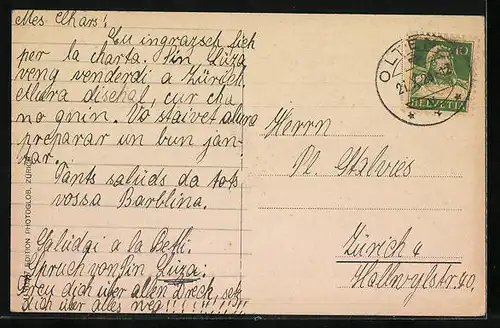 Mes chars!
Eu ingrazch fich
per la charta. Pin Lüza
veng venderdi a Zürich.
ellura dischal, cur cha
no gnin. Vo staivet alura
preparar un bun jan-
tar.
Tants salüds da tots
vossa Barblina.
Salüdai a la Betti.
Spruch von Pin Lüza:
Freu dich über allen Dreck, setz
dich über alles weg!!!!!!!!!
EDITION PHOTOGLOB, ZÜRICH
OLTEN
10
HELVETIA
Herrn
Pl. Stalvies
Zürich 4
Hallwylstr. 40.